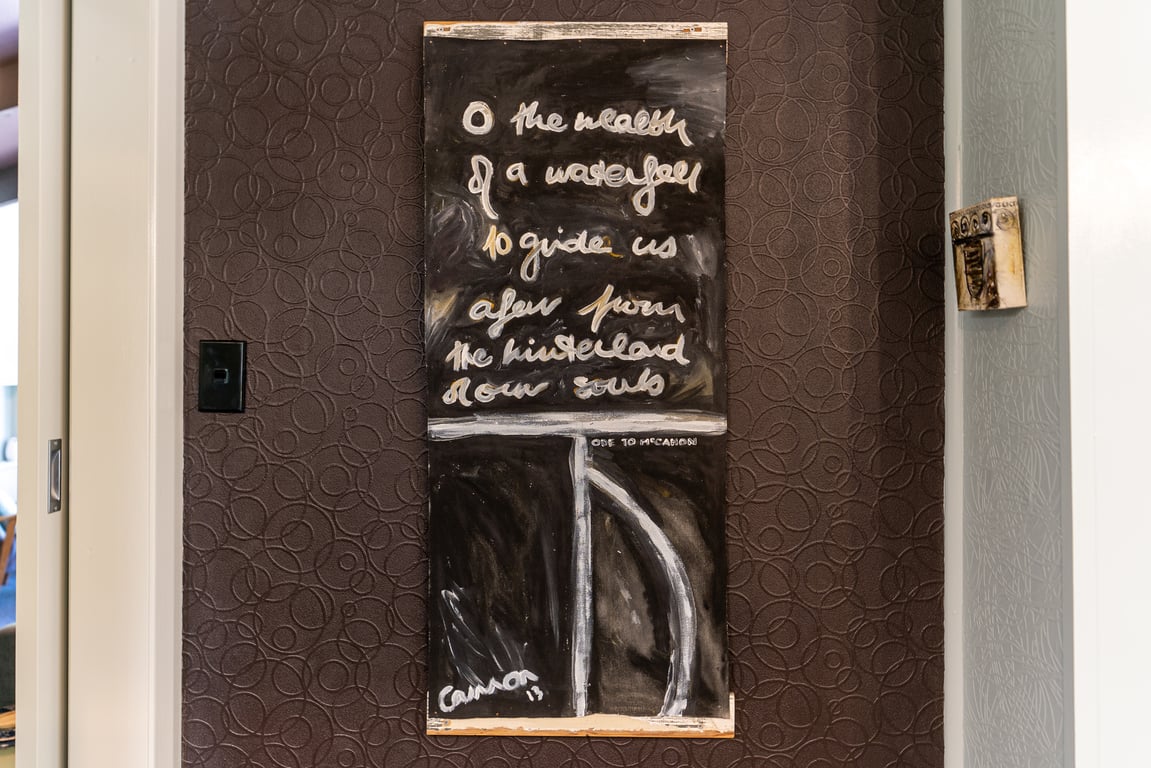 O the wealth
of a waterfall
to guide us
afar from
the hinterland
of our souls
ODE TO McCAHON
Cannon
13